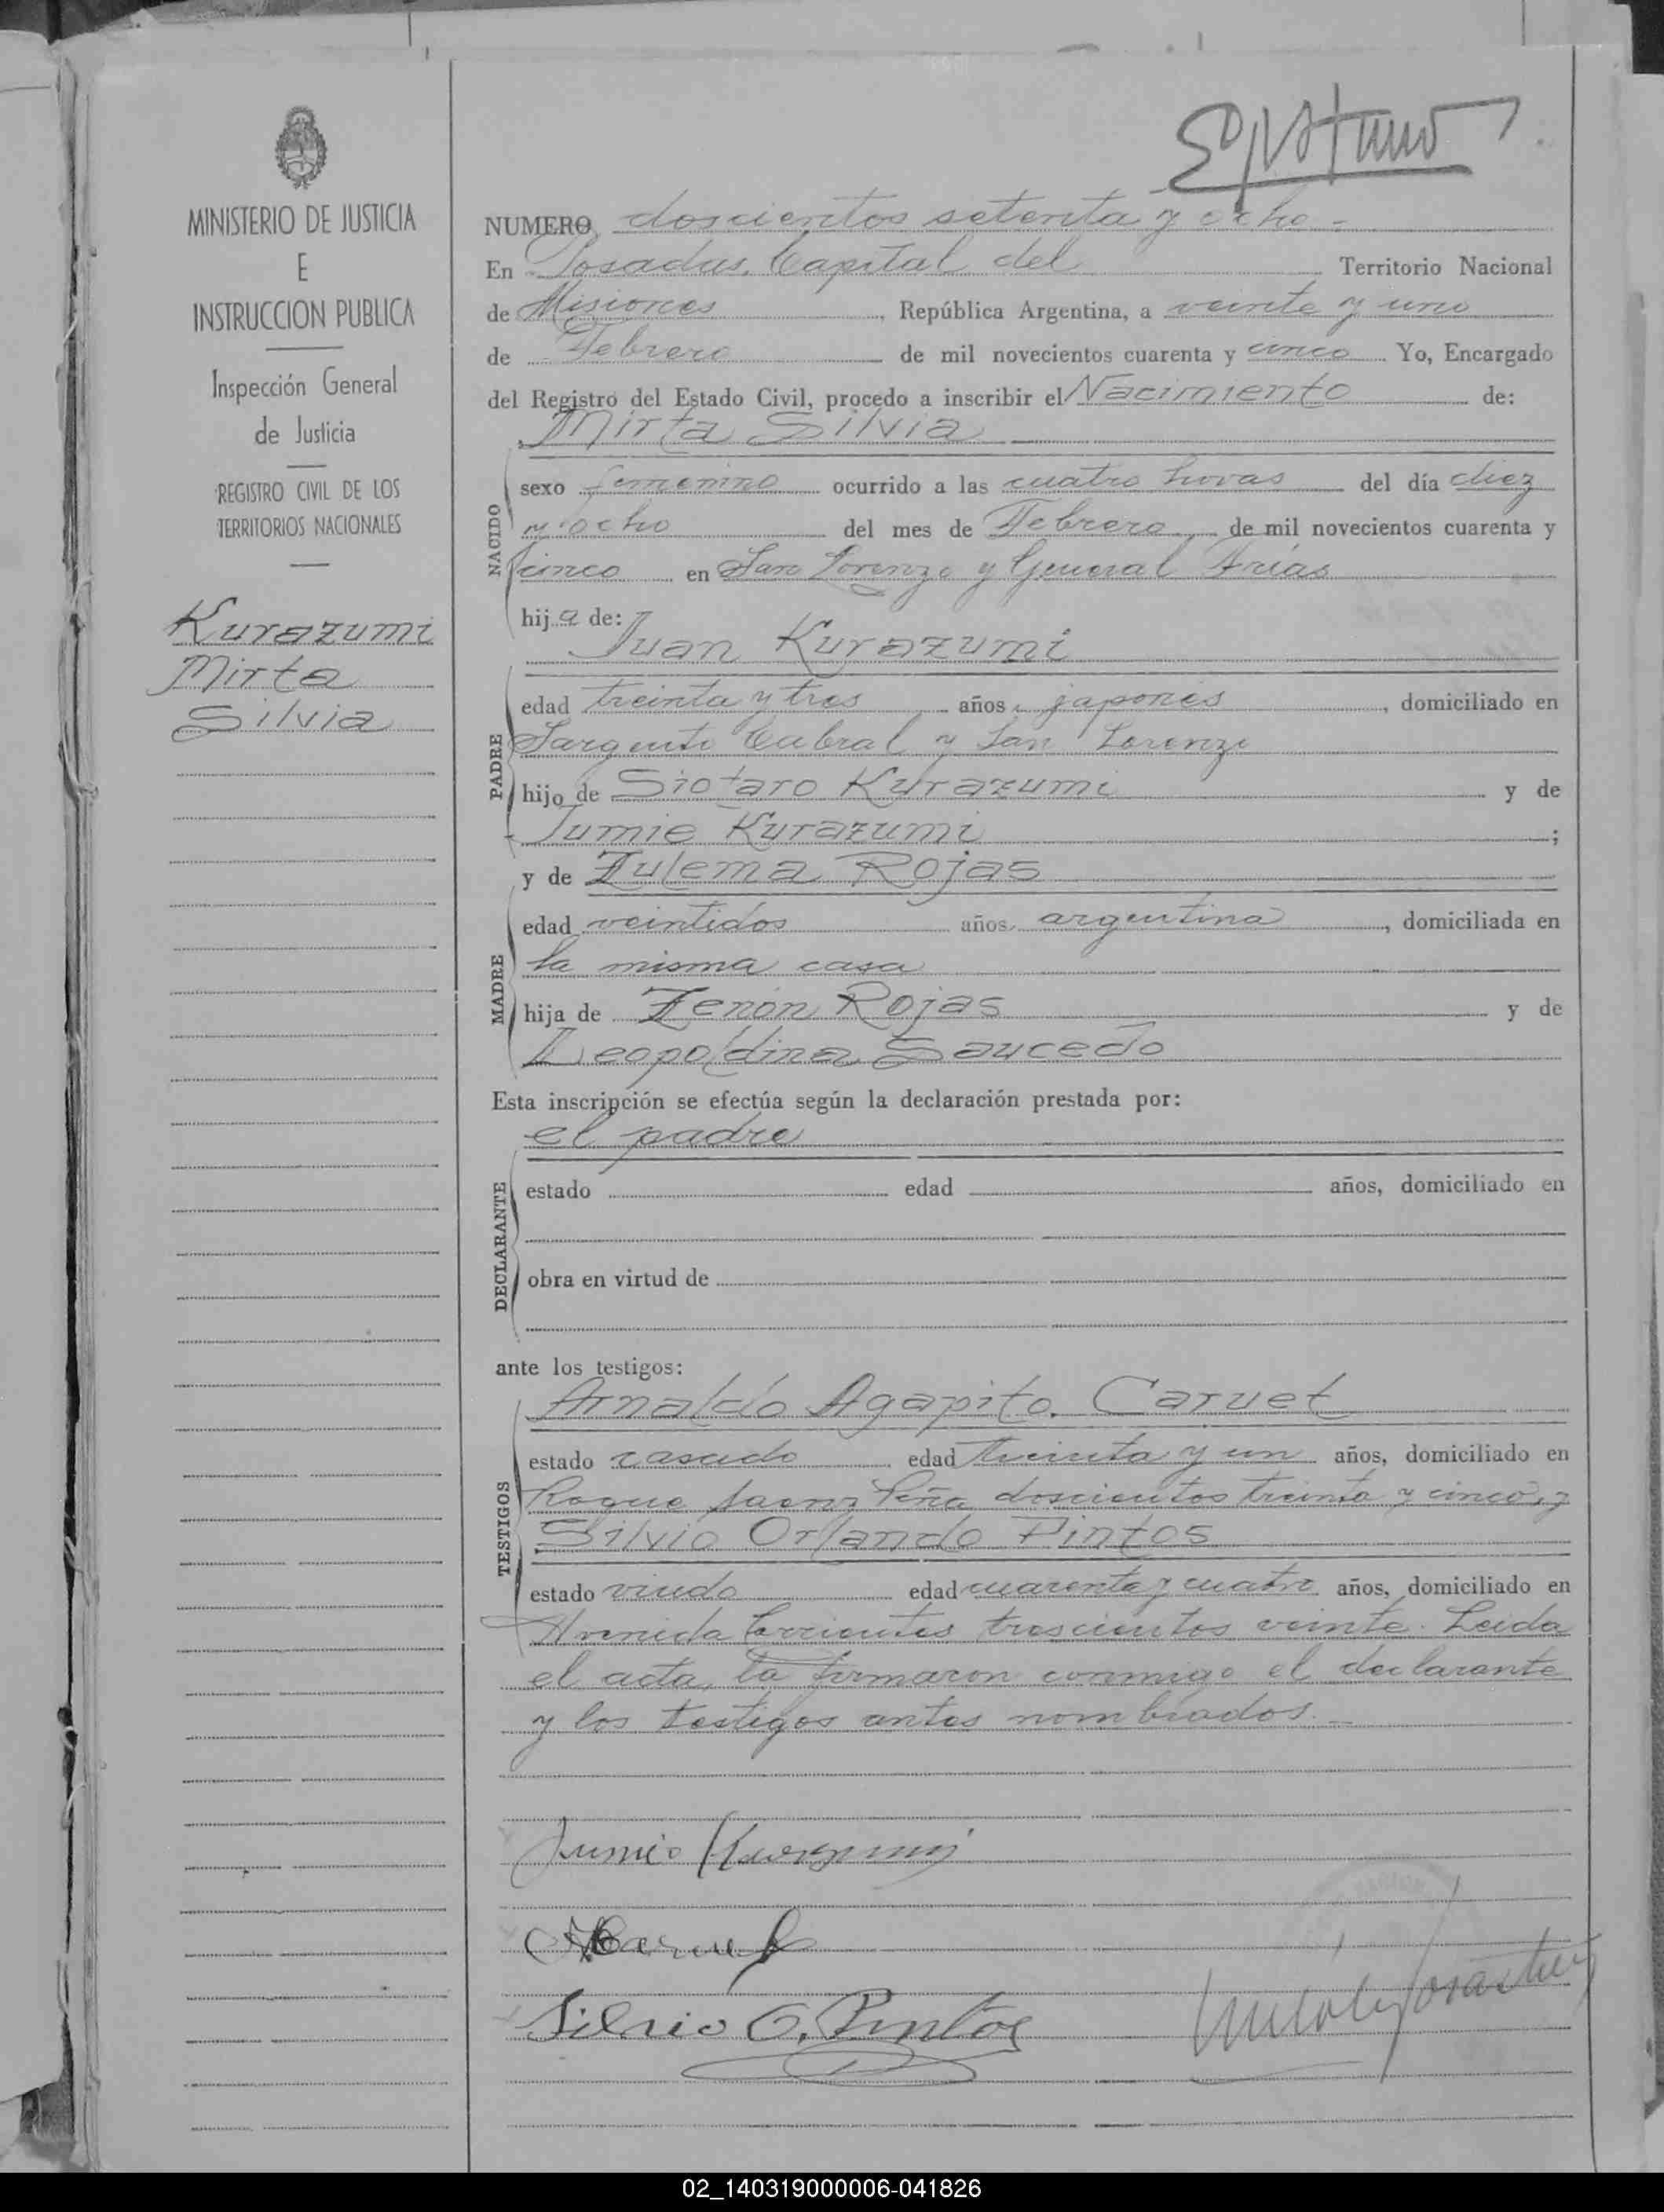 MINISTERIO DE JUSTICIA
E
INSTRUCCION PUBLICA
Inspección General
de Justicia
REGISTRO CIVIL DE LOS
TERRITORIOS NACIONALES
Kurazumi
Mirta
Silvia
NUMERO doscientos setenta y ocho.-
En Posadas, Capital del Territorio Nacional
de Misiones, República Argentina, a veinte y uno
de Febrero de mil novecientos cuarenta y cinco Yo, Encargado
del Registro del Estado Civil, procedo a inscribir el Nacimiento de:
Mirta Silvia
NACIDO
sexo femenino ocurrido a las cuatro horas del día diez
y ocho del mes de Febrero de mil novecientos cuarenta y
cinco en San Lorenzo y General Arias
hija de:
Juan Kurazumi
PADRE
edad treinta y tres años, japonés, domiciliado en
Sargento Cabral y San Lorenzo
hijo de Siotaro Kurazumi y de
Jumie Kurazumi;
y de Zulema Rojas
MADRE
edad veintidos años, argentina, domiciliada en
la misma casa
hija de Zenón Rojas y de
Leopoldina Saucedo
Esta inscripción se efectúa según la declaración prestada por:
el padre
DECLARANTE
estado edad años, domiciliado en
obra en virtud de
ante los testigos:
Arnaldo Agapito Caruet
TESTIGOS
estado casado edad treinta y un años, domiciliado en
Roque Saenz Peña doscientos treinta y cinco, y
Silvio Orlando Pintos
estado viudo edad cuarenta y cuatro años, domiciliado en
Avenida Corrientes trescientos veinte. Leida
el acta, la firmaron conmigo el declarante
y los testigos antes nombrados.-
Silvio O. Pintos
02_140319000006-041826